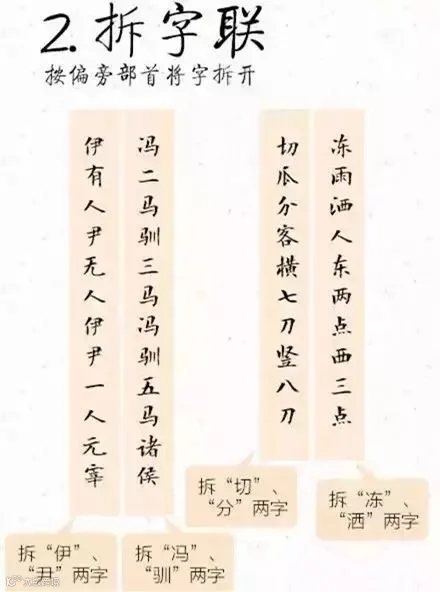 2.拆字联
按偏旁部首将字拆开
冻雨洒人东两点西三点
切瓜分客横七刀竖八刀
冯二马驯三马冯驯五马诸侯
伊有人尹无人伊尹一人元宰
拆“冻”、
“洒”两字
拆“切”、
“分”两字
拆“冯”、
“驯”两字
拆“伊”、
“尹”两字